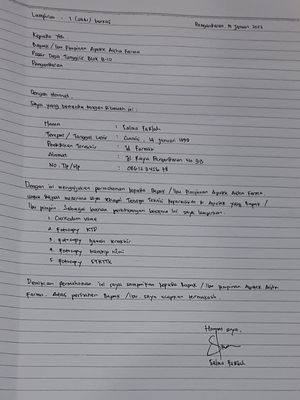 Lampiran : 1 (satu) berkas
Pangandaran, 14 Januari 2022
Kepada Yth.
Bapak / Ibu Pimpinan Apotek Aisha Farma
Pasar Desa Blok B-10
Pangandaran
Dengan Hormat,
Saya yang bertanda tangan dibawah ini :
Nama : Salma
Tempat / Tanggal Lahir : Ciamis, 14 Januari
Pendidikan Terakhir : Farmasi
Alamat : Jl. Raya Pangandaran No
No. Tlp / Hp :
Dengan ini mengajukan permohonan kepada Bapak / Ibu Pimpinan Apotek Aisha Farma,
Untuk dapat Tenaga Teknis Kefarmasian di Apotek yang Bapak /
Ibu pimpin. Sebagai bahan pertimbangan bersama ini saya lampirkan :
1. Curiculum Vitae
2. Fotocopy KTP
3. Fotocopy Ijazah terakhir
4. Fotocopy transkip nilai
5. Fotocopy STRTTK
Demikian permohonan ini saya sampaikan kepada Bapak / Ibu Pimpinan Apotek Aisha
Farma. Atas perhatian Bapak / Ibu, saya ucapkan terimakasih.
Hormat saya,
Salma